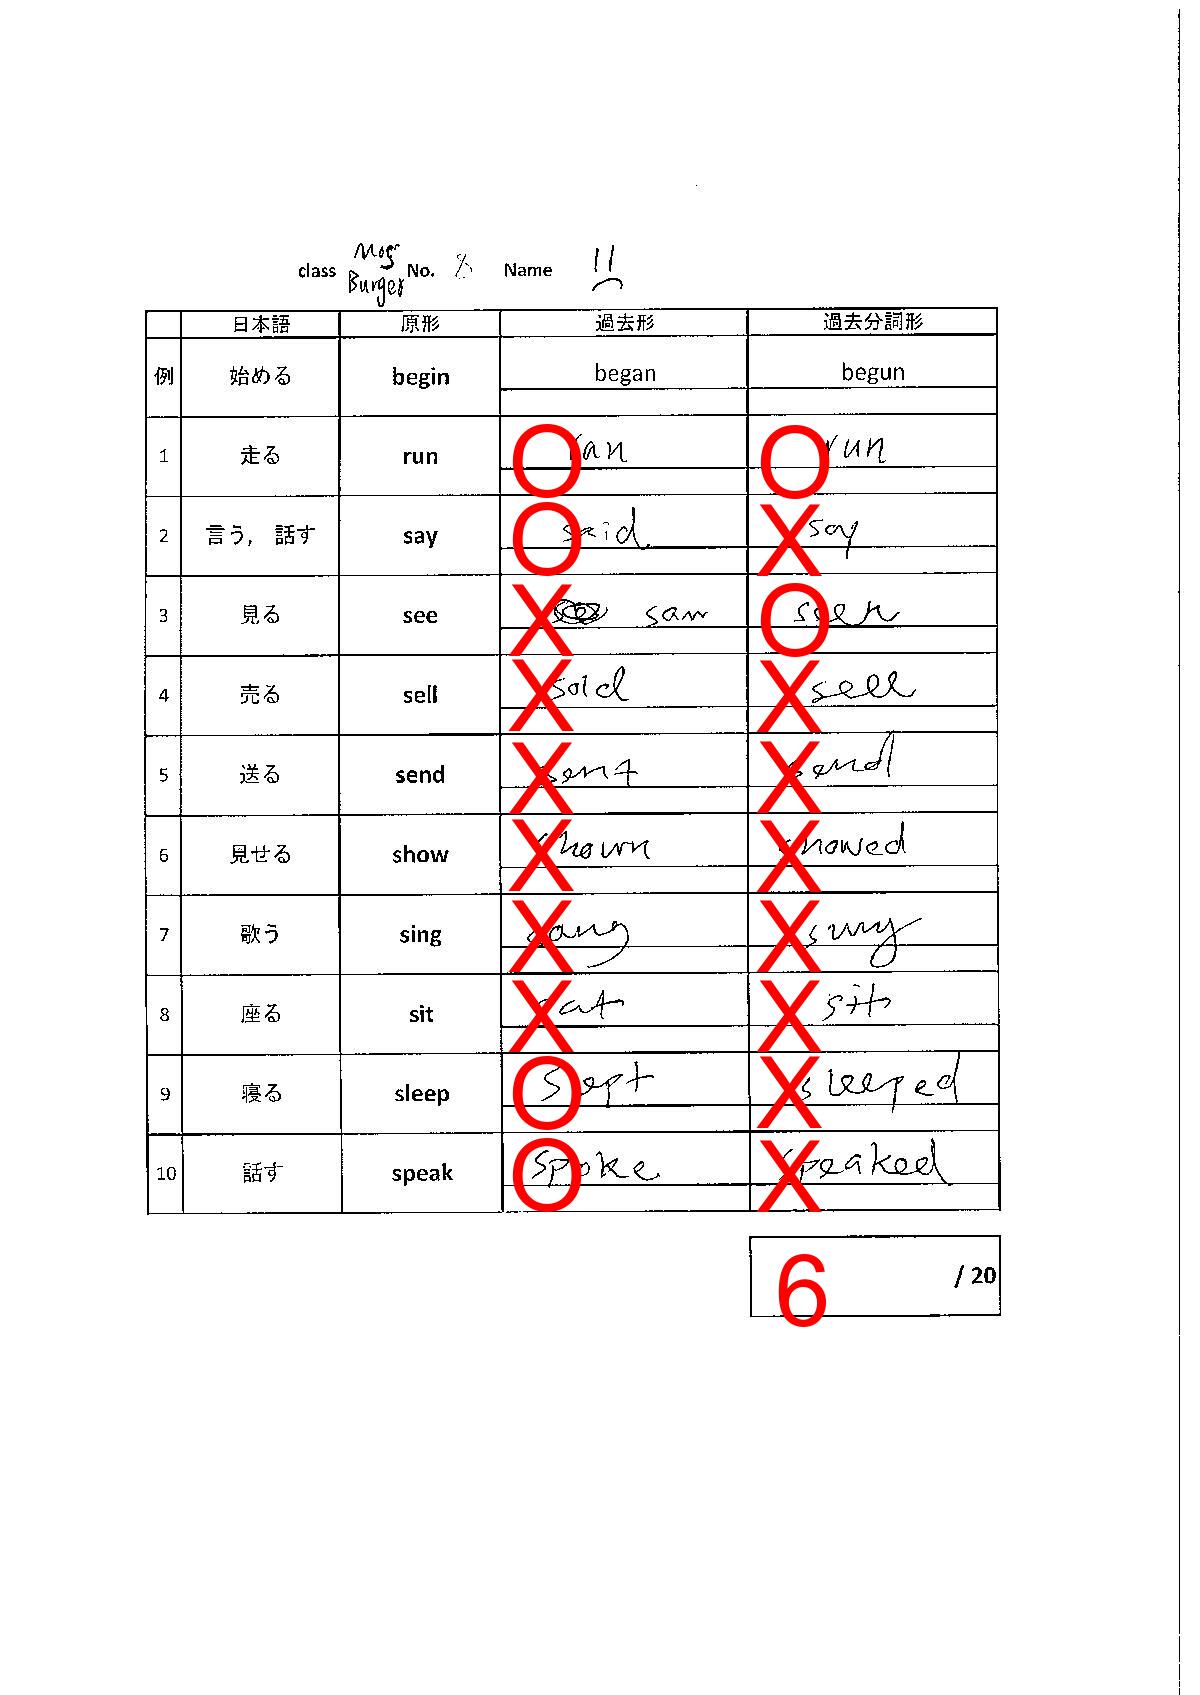 Mos
class Burger No. 8 Name 11
日本語 原形 過去形 過去分詞形
例 始める begin began begun
1 走る run O ran O run
2 言う， 話す say O said X say
3 見る see X saw O seen
4 売る sell X sold X sell
5 送る send X sent X send
6 見せる show X shown X showed
7 歌う sing X sang X sung
8 座る sit X sat X sit
9 寝る sleep O slept X sleeped
10 話す speak O spoke X speaked
6 / 20